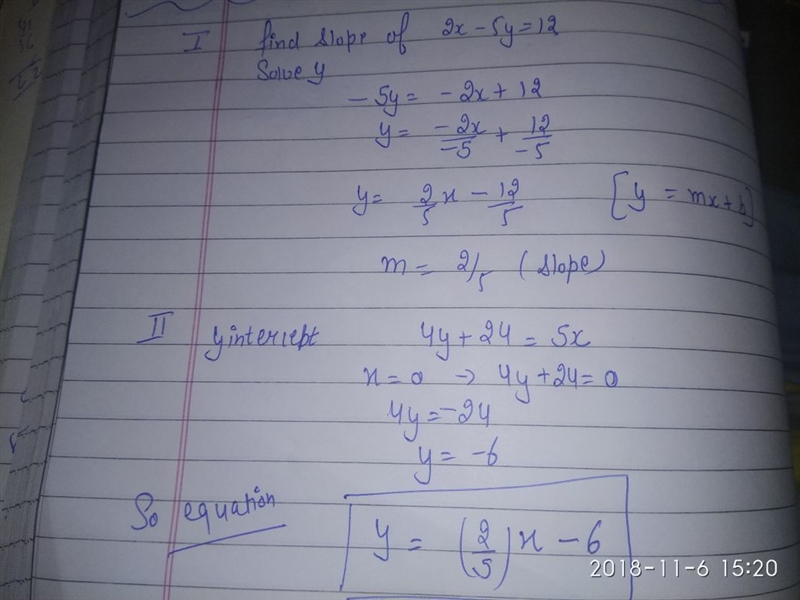 I find slope of 2x - 5y = 12
Solve y
- 5y = - 2x + 12
y = -2x/-5 + 12/-5
y = 2/5 x - 12/5 [y = mx + b]
m = 2/5 (slope)
II yintercept 4y + 24 = 5x
x = 0 → 4y + 24 = 0
4y = -24
y = -6
So equation
y = (2/5) x - 6
2018-11-6 15:20